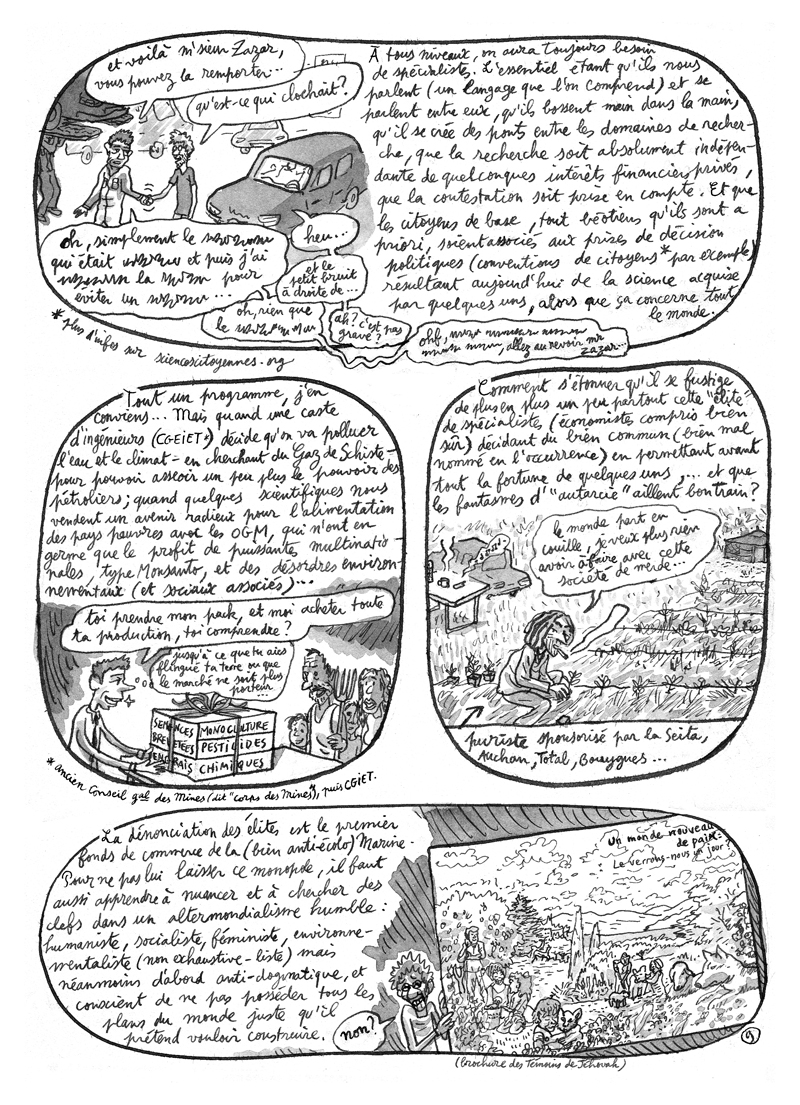 et voilà m'sieu Zazar,
vous pouvez la remporter...
qu'est-ce qui clochait?
oh, simplement le
qui était et puis j'ai
la pour
éviter un ...
heu...
et le
petit bruit
à droite de...
oh, rien que
le
ah? c'est pas
grave?
ohh,
, allez au revoir mr
Zazar...
À tous niveaux, on aura toujours besoin
de spécialistes. L'essentiel étant qu'ils nous
parlent (un langage que l'on comprend) et se
parlent entre eux, qu'ils bossent main dans la main,
qu'il se crée des ponts entre les domaines de recher-
che, que la recherche soit absolument indépen-
dante de quelconques intérêts financiers privés,
que la contestation soit prise en compte. Et que
les citoyens de base, tout béotiens qu'ils sont a
priori, soient associés aux prises de décision
politiques (conventions de citoyens* par exemple)
résultant aujourd'hui de la science acquise
par quelques uns, alors que ça concerne tout
le monde.
* plus d'infos sur sciencescitoyennes.org
Tout un programme, j'en
conviens... Mais quand une caste
d'ingénieurs (CGEIET*) décide qu'on va polluer
l'eau et le climat - en cherchant du Gaz de Schiste -
pour pouvoir asseoir un peu plus le pouvoir des
pétroliers; quand quelques scientifiques nous
vendent un avenir radieux pour l'alimentation
des pays pauvres avec les OGM, qui n'ont en
germe que le profit de puissantes multinatio-
nales, type Monsanto, et des désordres environ-
nementaux (et sociaux associés)...
toi prendre mon pack, et moi acheter toute
ta production, toi comprendre?
jusqu'à ce que tu aies
flingué ta terre ou que
le marché ne soit plus
porteur...
SEMENCES
BREVETÉES
ENGRAIS
MONOCULTURE
PESTICIDES
CHIMIQUES
* ancien Conseil gal des Mines (dit "corps des Mines"), puis CGIET.
Comment s'étonner qu'il se fustige
de plus en plus un peu partout cette "élite"
de spécialistes (économistes compris bien
sûr) décidant du bien commun (bien mal
nommé en l'occurrence) en permettant avant
tout la fortune de quelques uns,... et que
les fantasmes d'"autarcie" aillent bon train?
le monde part en
couille, je veux plus rien
avoir à faire avec cette
société de merde...
puriste sponsorisé par la Seita,
Auchan, Total, Bouygues...
La dénonciation des élites est le premier
fonds de commerce de la (bien anti-écolo) Marine.
Pour ne pas lui laisser ce monopole, il faut
aussi apprendre à nuancer et à chercher des
clefs dans un altermondialisme humble:
humaniste, socialiste, féministe, environne-
mentaliste (non exhaustive-liste) mais
néanmoins d'abord anti-dogmatique, et
conscient de ne pas posséder tous les
plans du monde juste qu'il
prétend vouloir construire.
non?
Un monde nouveau
de paix:
Le verrons-nous un jour?
9
(brochure des Témoins de Jéhovah)